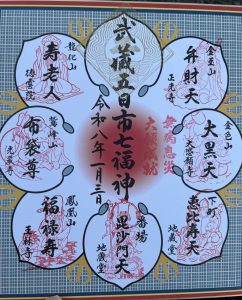 武蔵五日市七福神
令和八年一月三日
金玉山
弁財天
正光寺
金色山
大黒天
大悲願寺
下町
恵比寿天
地蔵堂
番場
毘沙門天
地蔵堂
鳳凰山
福禄寿
玉林寺
鷲峰山
布袋尊
光厳寺
龍化山
寿老人
徳雲院
無病息災